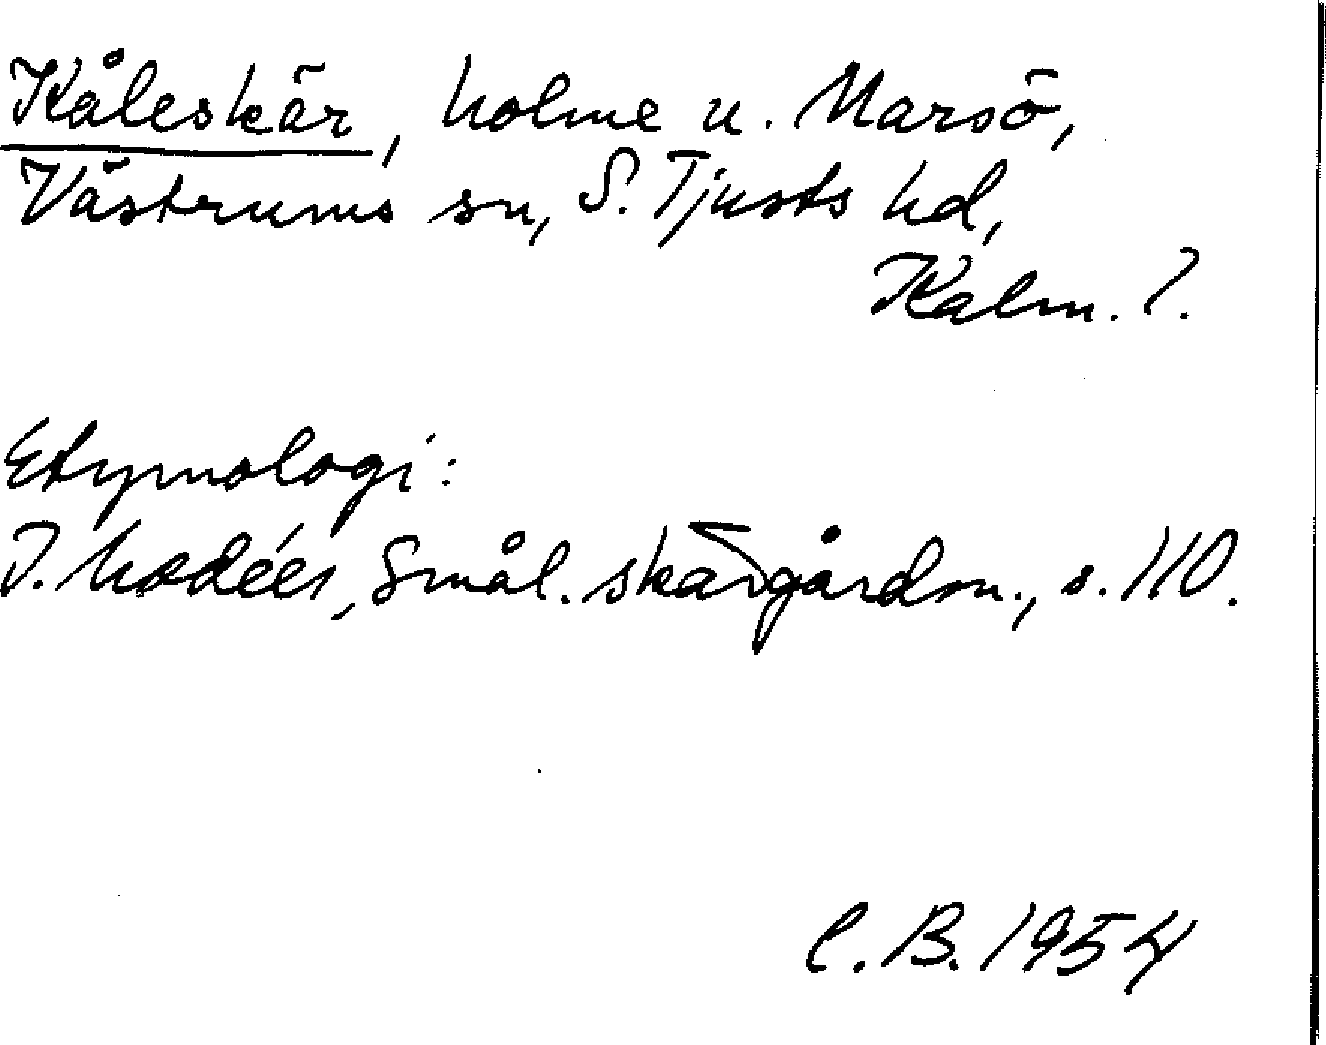 Kåleskär, holme u. Marsö,
Västrums sn, S. Tjusts hd,
Kalm. l.
Etymologi:
I. Modéer, Smål. skärgårdsn., s. 110.
C. B. 1954